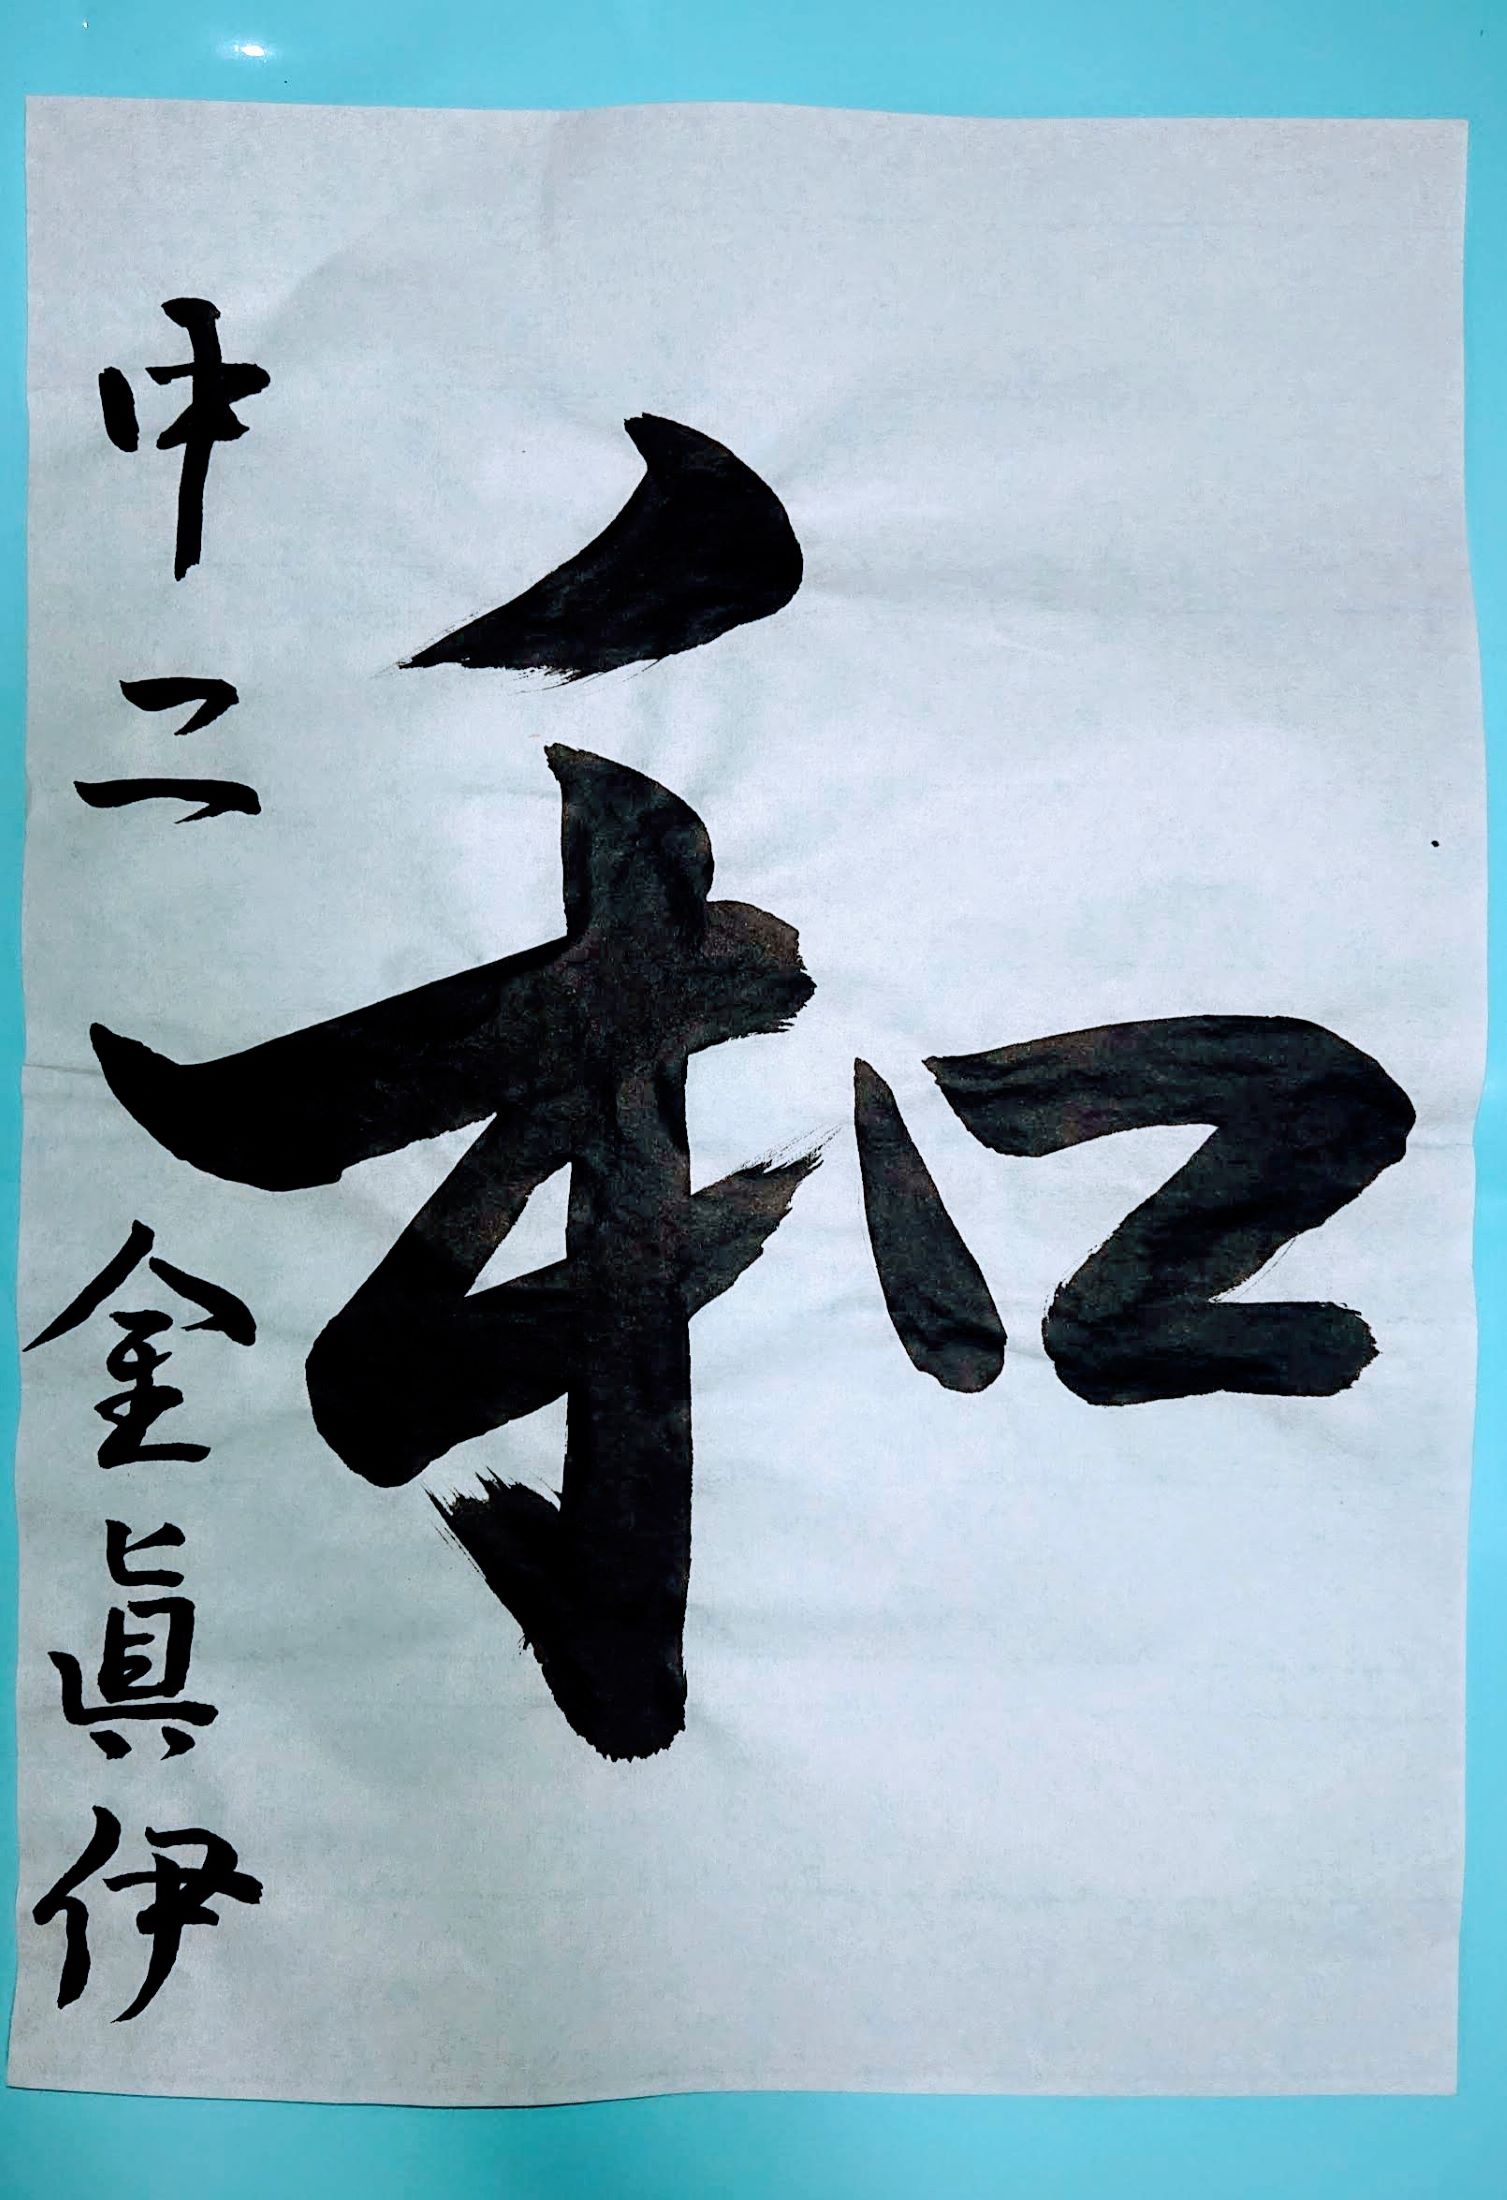 和
中二 金眞伊